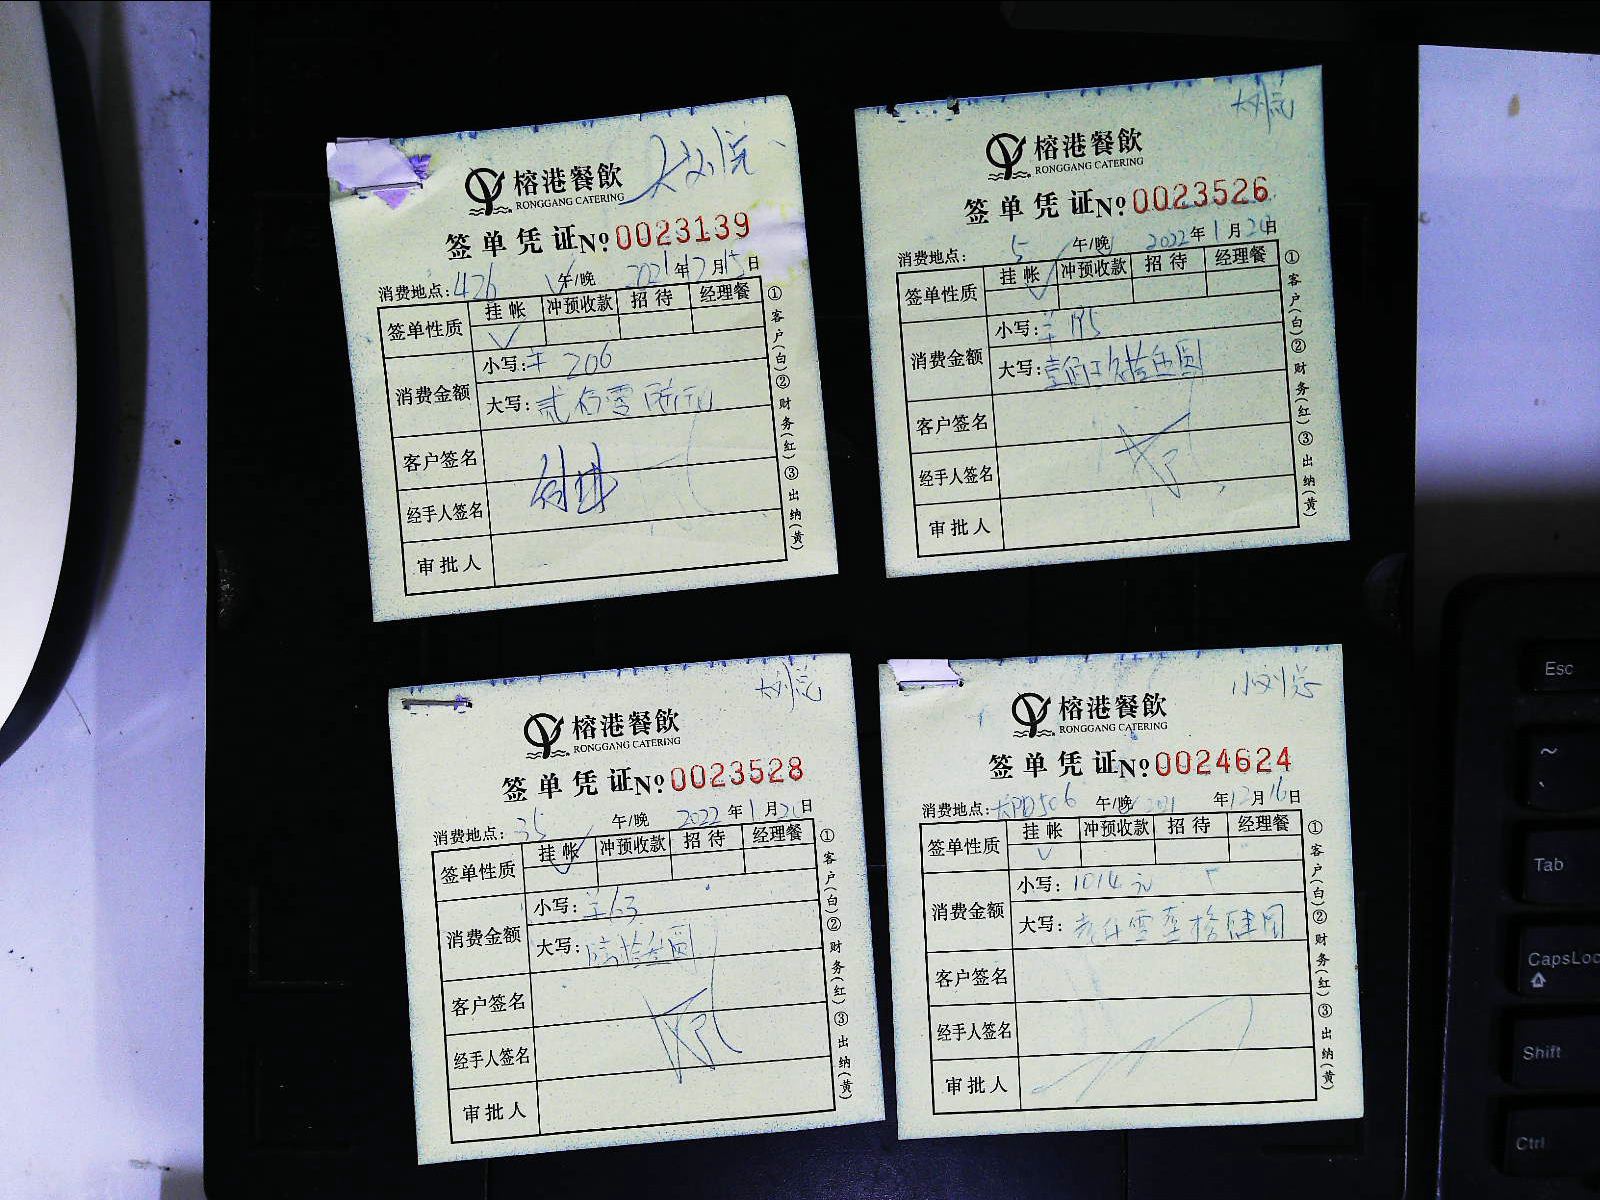 大刘总
榕港餐飲
RONGGANG CATERING
签单凭证No 0023139
消费地点:426 午/晚 2021年7月15日
签单性质 挂帐 冲预收款 招待 经理餐
消费金额 小写:¥206
大写:贰佰零陆元
客户签名
经手人签名
审批人
①客户(白)②财务(红)③出纳(黄)
大刘总
榕港餐飲
RONGGANG CATERING
签单凭证No 0023526
消费地点: 午/晚 2022年1月日
签单性质 挂帐 冲预收款 招待 经理餐
消费金额 小写:¥195
大写:壹佰玖拾伍圆
客户签名
经手人签名
审批人
①客户(白)②财务(红)③出纳(黄)
大刘总
榕港餐飲
RONGGANG CATERING
签单凭证No 0023528
消费地点:35 午/晚 2022年1月日
签单性质 挂帐 冲预收款 招待 经理餐
消费金额 小写:¥63
大写:陆拾叁圆
客户签名
经手人签名
审批人
①客户(白)②财务(红)③出纳(黄)
小刘总
榕港餐飲
RONGGANG CATERING
签单凭证No 0024624
消费地点:506 午/晚 2021年12月16日
签单性质 挂帐 冲预收款 招待 经理餐
消费金额 小写:1014元
大写:壹仟零壹拾肆圆
客户签名
经手人签名
审批人
①客户(白)②财务(红)③出纳(黄)
Esc
~
Tab
CapsLoc
Shift
Ctrl